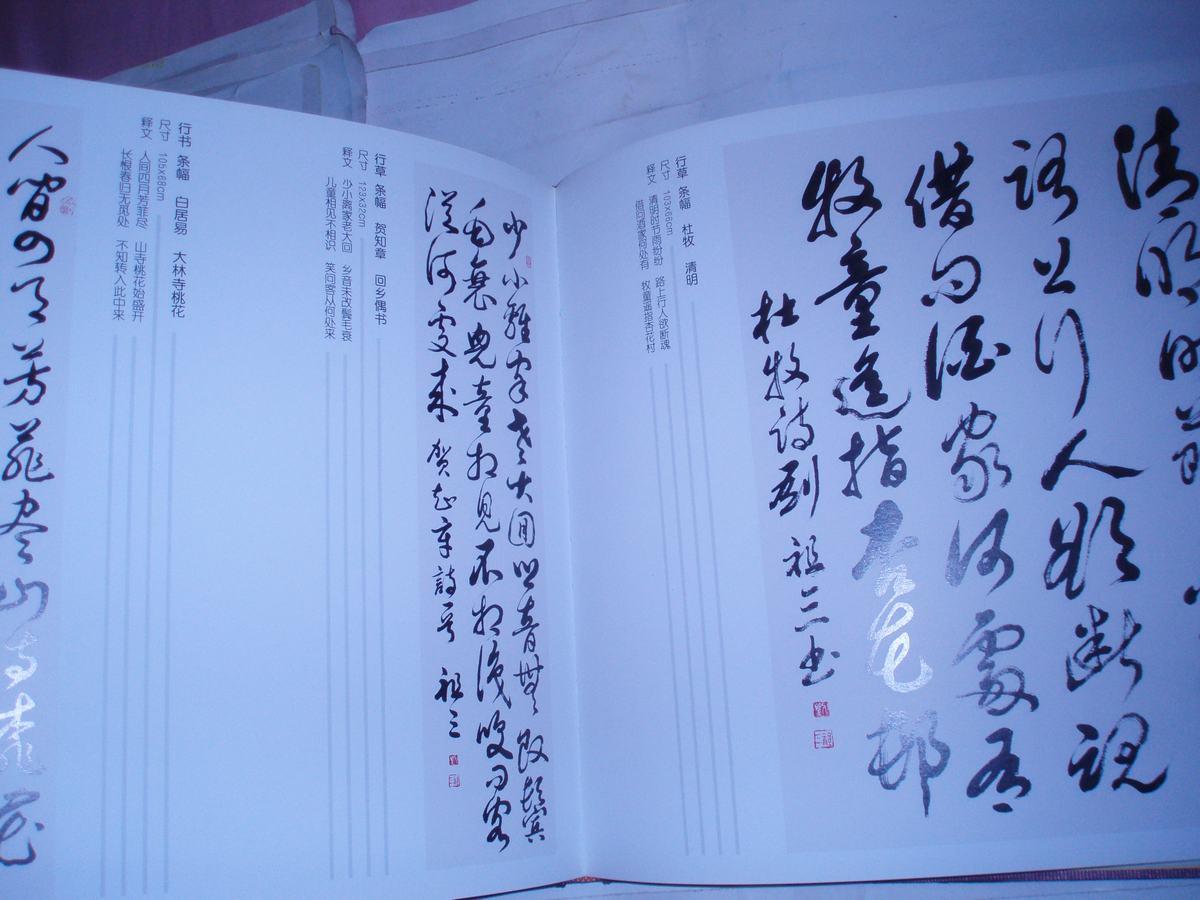 清明時節
路上行人欲斷魂
借問酒家何處有
牧童遙指杏花邨
杜牧詩劉祖三書
行草 条幅 杜牧 清明
尺寸 103x66cm
释文 清明时节雨纷纷 路上行人欲断魂
借问酒家何处有 牧童遥指杏花村
少小離家老大回鄉音無改鬢
毛衰兒童相見不相識笑問客
從何處來 賀知章詩 祖三
行草 条幅 贺知章 回乡偶书
尺寸 123x32cm
释文 少小离家老大回 乡音未改鬓毛衰
儿童相见不相识 笑问客从何处来
行书 条幅 白居易 大林寺桃花
尺寸 105x68cm
释文 人间四月芳菲尽 山寺桃花始盛开
长恨春归无觅处 不知转入此中来
人間四月芳菲盡山寺桃花